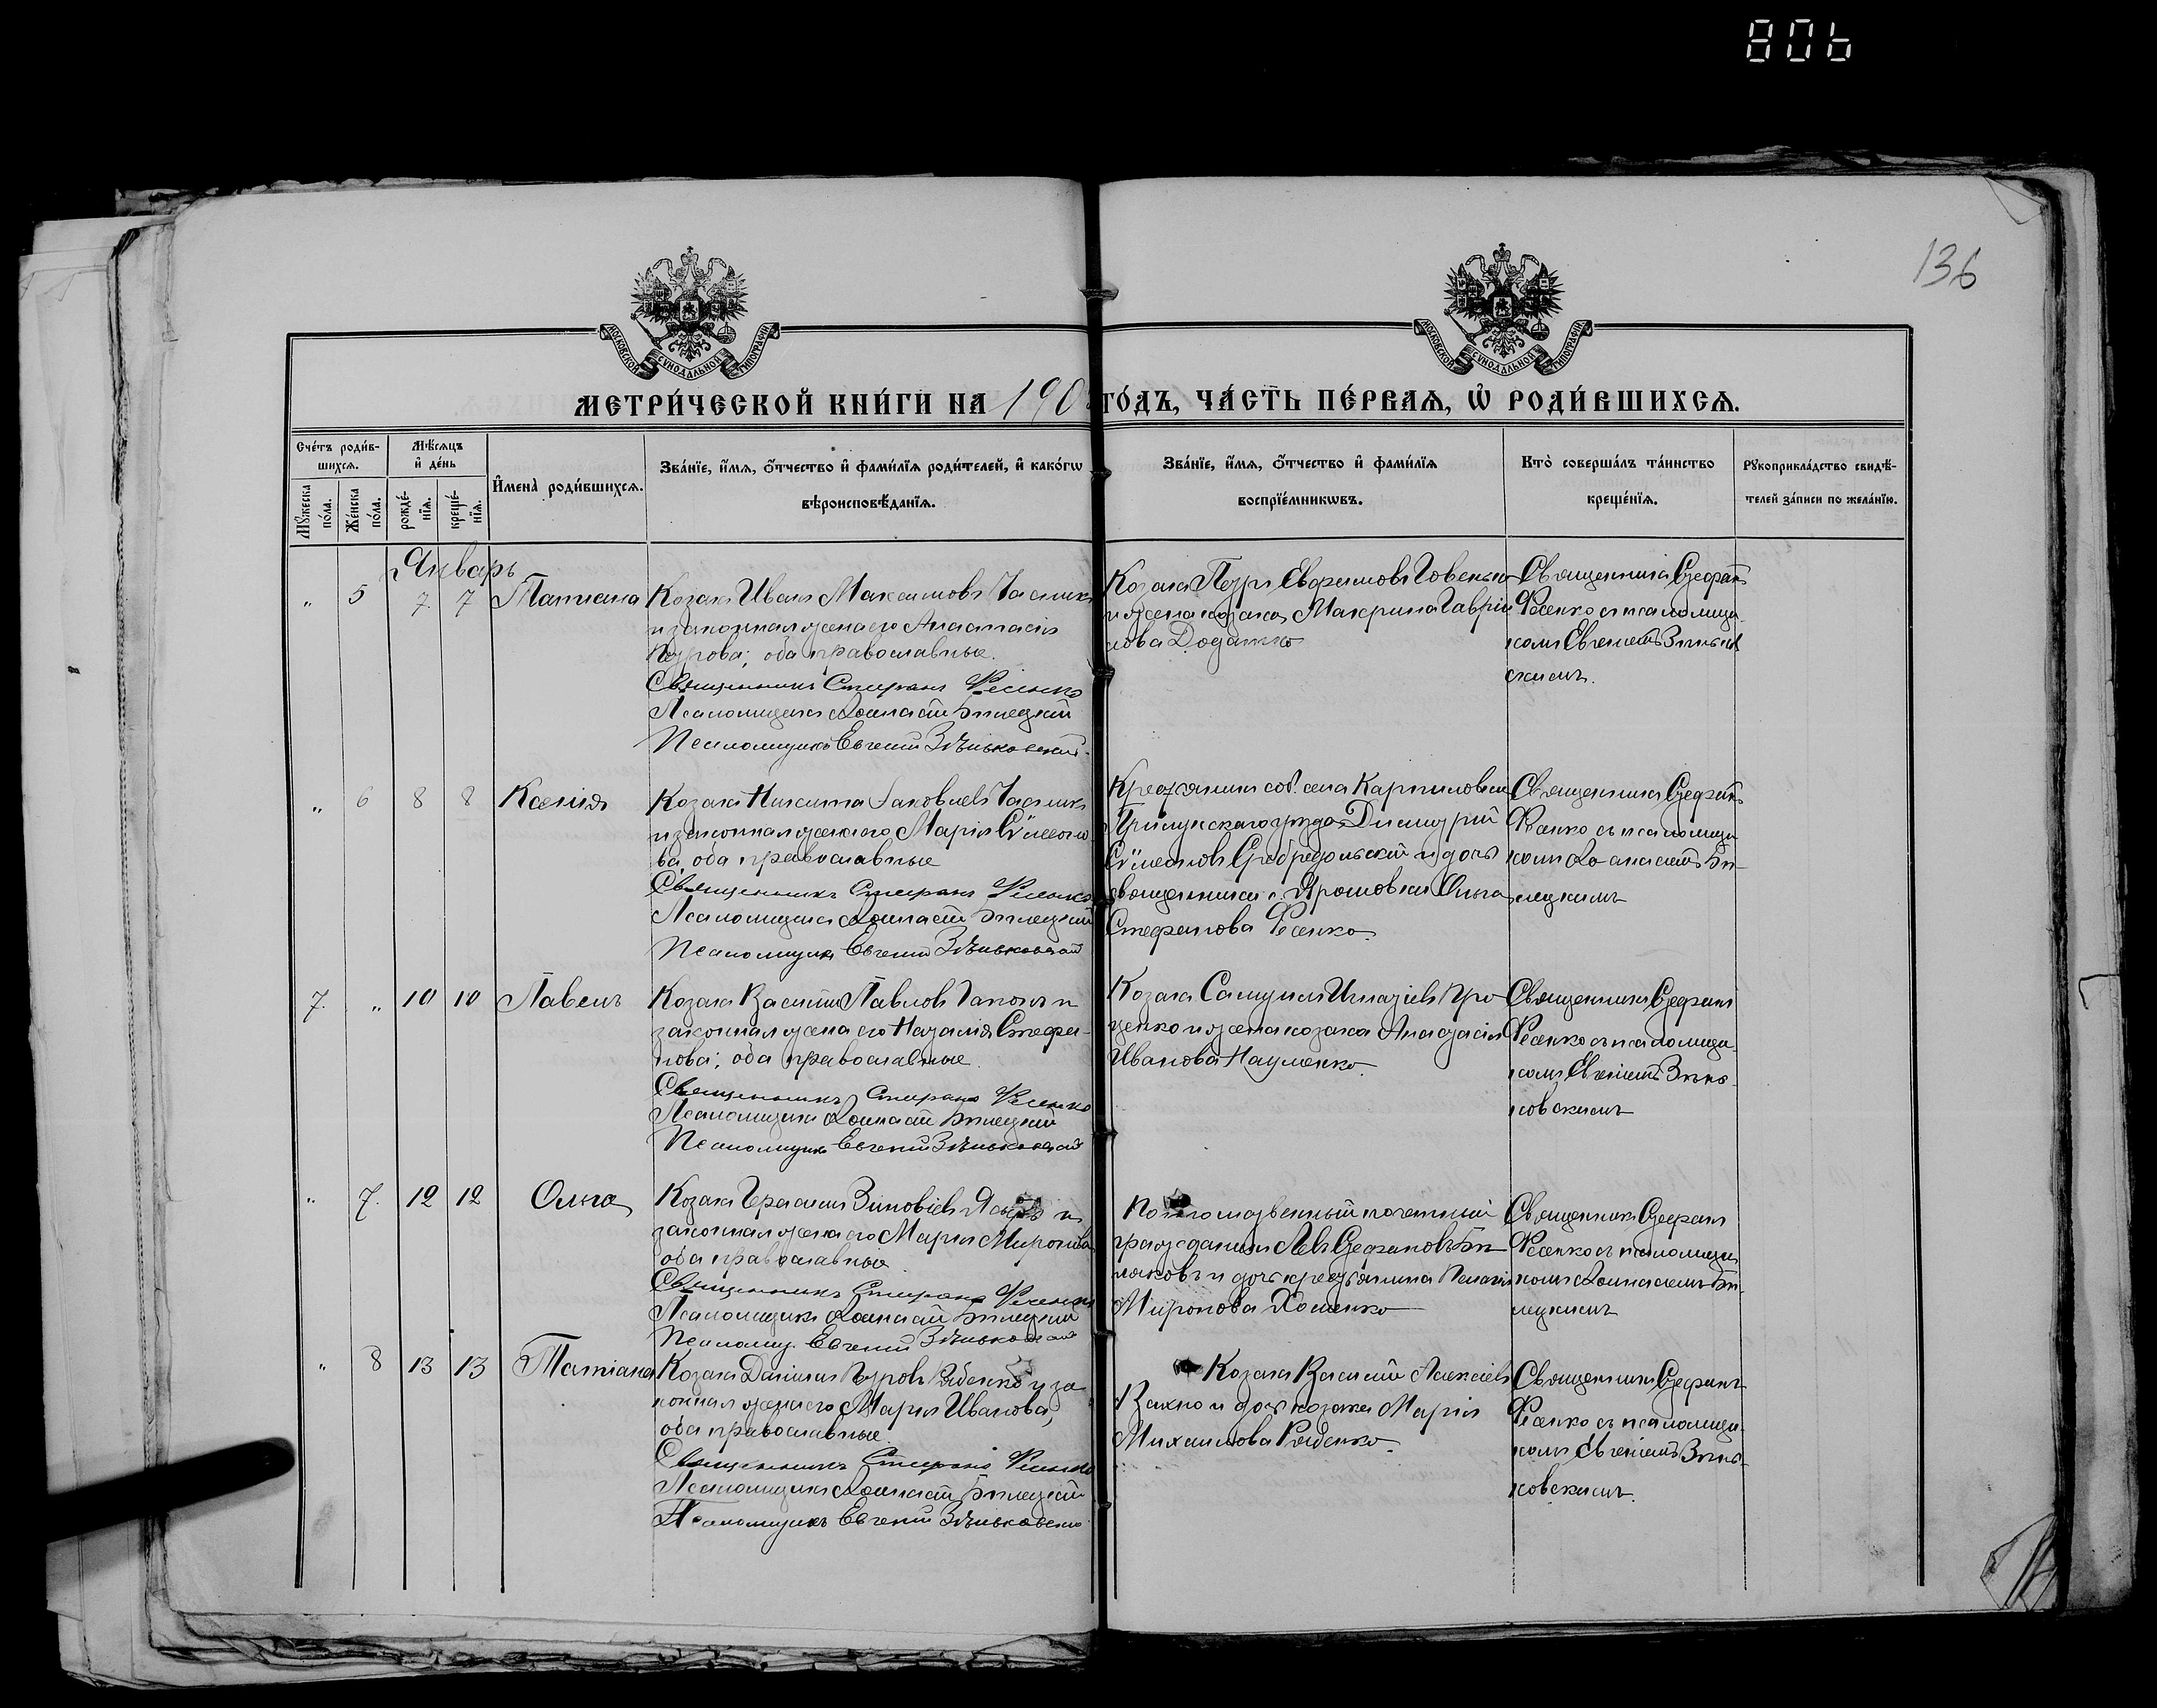 806
136
МОСКОВСКОЙ СѴНОДАЛЬНОЙ ТИПОГРАФІИ
МОСКОВСКОЙ СѴНОДАЛЬНОЙ ТИПОГРАФІИ
МЕТРИ́ЧЕСКОЙ КНИ́ГИ НА 190 ГО́ДЪ, ЧА́СТЬ ПЕ́РВАѦ, Ѡ҆ РОДИ́ВШИХСѦ.
Сче́тъ роди́в-
шихсѧ.
Мꙋ́жеска по́ла.
Же́нска по́ла.
Мѣ́сѧцъ и҆ де́нь
рожде́-нїѧ.
креще́-нїѧ.
И҆мена̀ роди́вшихсѧ.
Зва́нїе, и҆́мѧ, ѻ҆́тчество и҆ фами́лїѧ роди́телей, и҆ како́гѡ
вѣроисповѣ́данїѧ.
Зва́нїе, и҆́мѧ, ѻ҆́тчество и҆ фами́лїѧ
воспрїе́мникѡвъ.
Кто̀ соверша́лъ та́инство
креще́нїѧ.
Рꙋкоприкла́дство свидѣ́-
телей за́писи по жела́нїю.
Январь
" 5 7. 7 Татіана
Козакъ Иванъ Максимовъ
и законная жена его Анастасія
Петрова; оба православные.
Священникъ Стефанъ Фесенко
Псаломщикъ Билецкій
Псаломщикъ Евгеній Зѣньковскій.
Козакъ Петръ Евфимовъ
и жена козака Макрина Гаврии
лова
Священникъ Стефанъ
Фесенко съ псаломщи
комъ Евгеніемъ Зѣньков
скимъ.
" 6 8 8 Ксенія
Козакъ Никита Іаковлевъ
и законная жена его Марія Сѵмеоно
ва, оба православные
Священникъ Стефанъ Фесенко
Псаломщикъ Билецкій
Псаломщикъ Евгеній Зѣньковскій
Крестьянинъ соб. села Карпиловки
Прилукскаго уѣзда, Димитрій
Сѵмеоновъ и дочь
священника с. Ярошовки Ольга
Стефанова Фесенко.
Священникъ Стефанъ
Фесенко съ псаломщи
комъ Би-
лецкимъ
7. " 10 10 Павелъ
Козакъ Василій Павловъ и
законная жена его Наталія Стефа-
нова; оба православные.
Священникъ Стефанъ Фесенко
Псаломщикъ Билецкій
Псаломщикъ Евгеній Зѣньковскій
Козакъ Самуилъ Игнатіевъ Про
ценко и жена козака Анастасія
Иванова Науменко.
Священникъ Стефанъ
Фесенко съ псаломщи
комъ Евгеніемъ Зѣнь-
ковскимъ
" 7. 12 12 Ольга
Козакъ Герасимъ Зиновіевъ и
законная жена его Марія Миронова
оба православные
Священникъ Стефанъ Фесенко
Псаломщикъ Билецкій
Псаломщ. Евгеній Зѣньковскій
Потомственный почетный
гражданинъ Левъ Стефановъ Би
ляковъ и дочь крестьянина Пелагія
Миронова Хоменко
Священникъ Стефанъ
Фесенко съ псаломщи
комъ Би-
лецкимъ
" 8 13 13 Татіана
Козакъ Даніилъ Петровъ Рябенко и за
конная жена его Марія Иванова,
оба православные.
Священникъ Стефанъ Фесенко
Псаломщикъ Билецкій
Псаломщикъ Евгеній Зѣньковскій
Козакъ Василій Алексіевъ
и дочь козака Марія
Михаилова Рябенко.
Священникъ Стефанъ
Фесенко съ псаломщи
комъ Евгеніемъ Зѣнь-
ковскимъ.